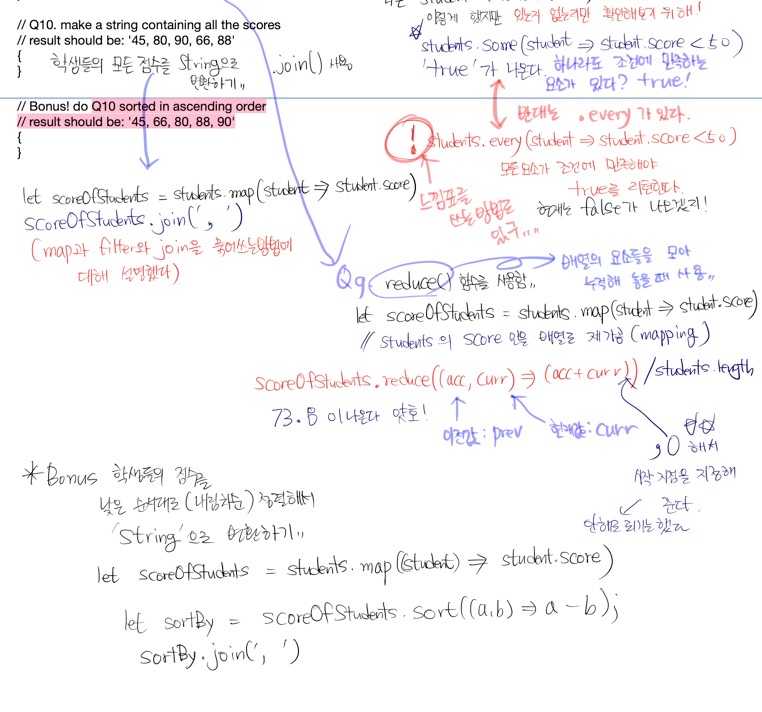 // Q10. make a string containing all the scores
// result should be: '45, 80, 90, 66, 88'
{
}
학생들의 모든 점수를 String으로
변환하기,,
.join() 사용
// Bonus! do Q10 sorted in ascending order
// result should be: '45, 66, 80, 88, 90'
{
}
let scoreOfStudents = students.map(student => student.score)
scoreOfStudents.join(', ')
(map과 filter와 join을 묶어쓰는방법에
대해 설명했다)
이렇게 했지만 있는지 없는지만 확인해보기 위해!
students.some(student => student.score < 50)
'true'가 나온다. 하나라도 조건에 만족하는
요소가 있다? true!
반대는 .every가 있다.
! students.every(student => student.score < 50)
모든요소가 조건에 만족해야
true를 리턴한다.
현재는 false가 나오겠지!
느낌표를
쓰는방법도
있구,,,,
Q9. reduce() 함수를 사용함,,
배열의 요소들을 모아
누적해 놓을 때 사용,,
let scoreOfStudents = students.map(student => student.score)
// students의 score 만을 배열로 제가공 (mapping)
scoreOfStudents.reduce((acc, curr) => (acc+curr)) / students.length
73.8 이나온다 얏호!
이전값: prev
현재값: curr
,0 해서
시작 지점을 지정해
준다.
안해도 되기는했다
*Bonus 학생들의 점수를
낮은 순서대로 (내림차순) 정렬해서
'String'으로 변환하기,,
let scoreOfStudents = students.map((student) => student.score)
let sortBy = scoreOfStudents.sort((a,b) => a - b);
sortBy.join(', ')